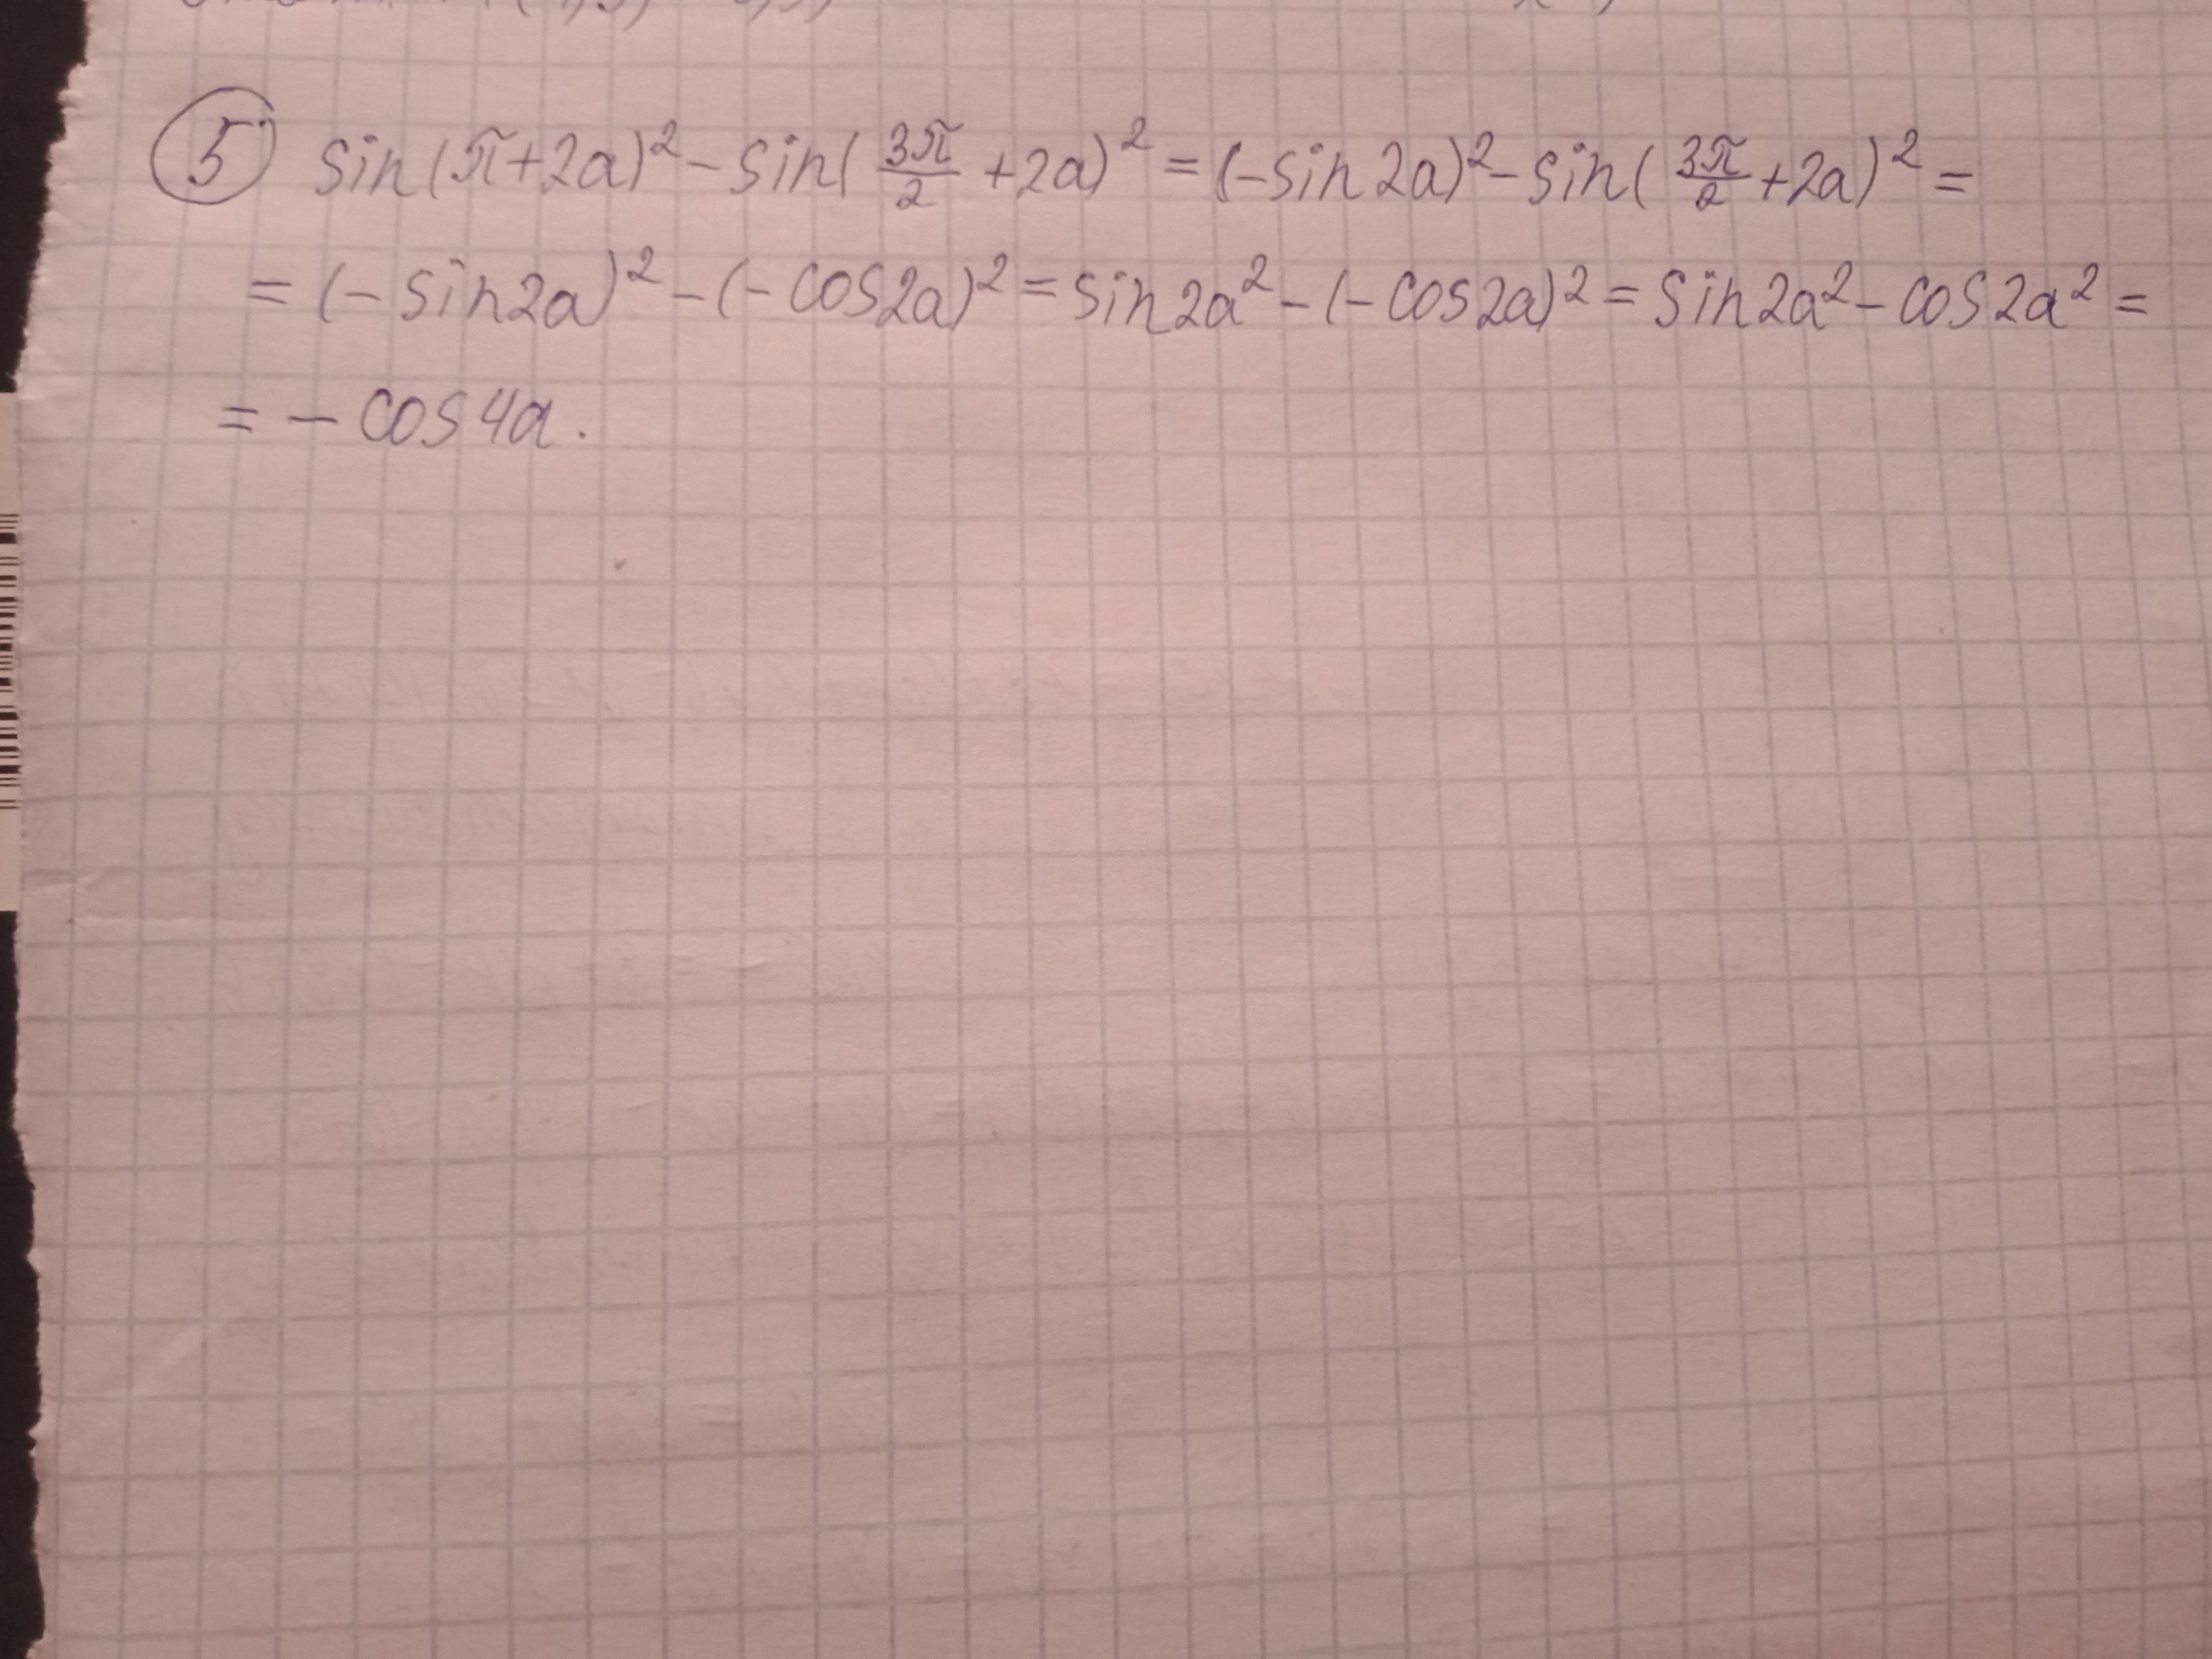 5 sin(π+2a)² - sin(3π/2 +2a)² = (-sin 2a)² - sin(3π/2 +2a)² =
= (-sin2a)² - (-cos2a)² = sin2a² - (-cos2a)² = sin2a² - cos2a² =
= - cos4a.